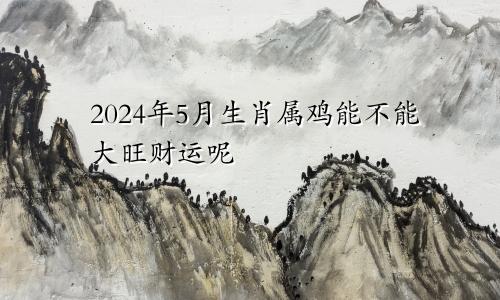 2024年5月生肖属鸡能不能
大旺财运呢